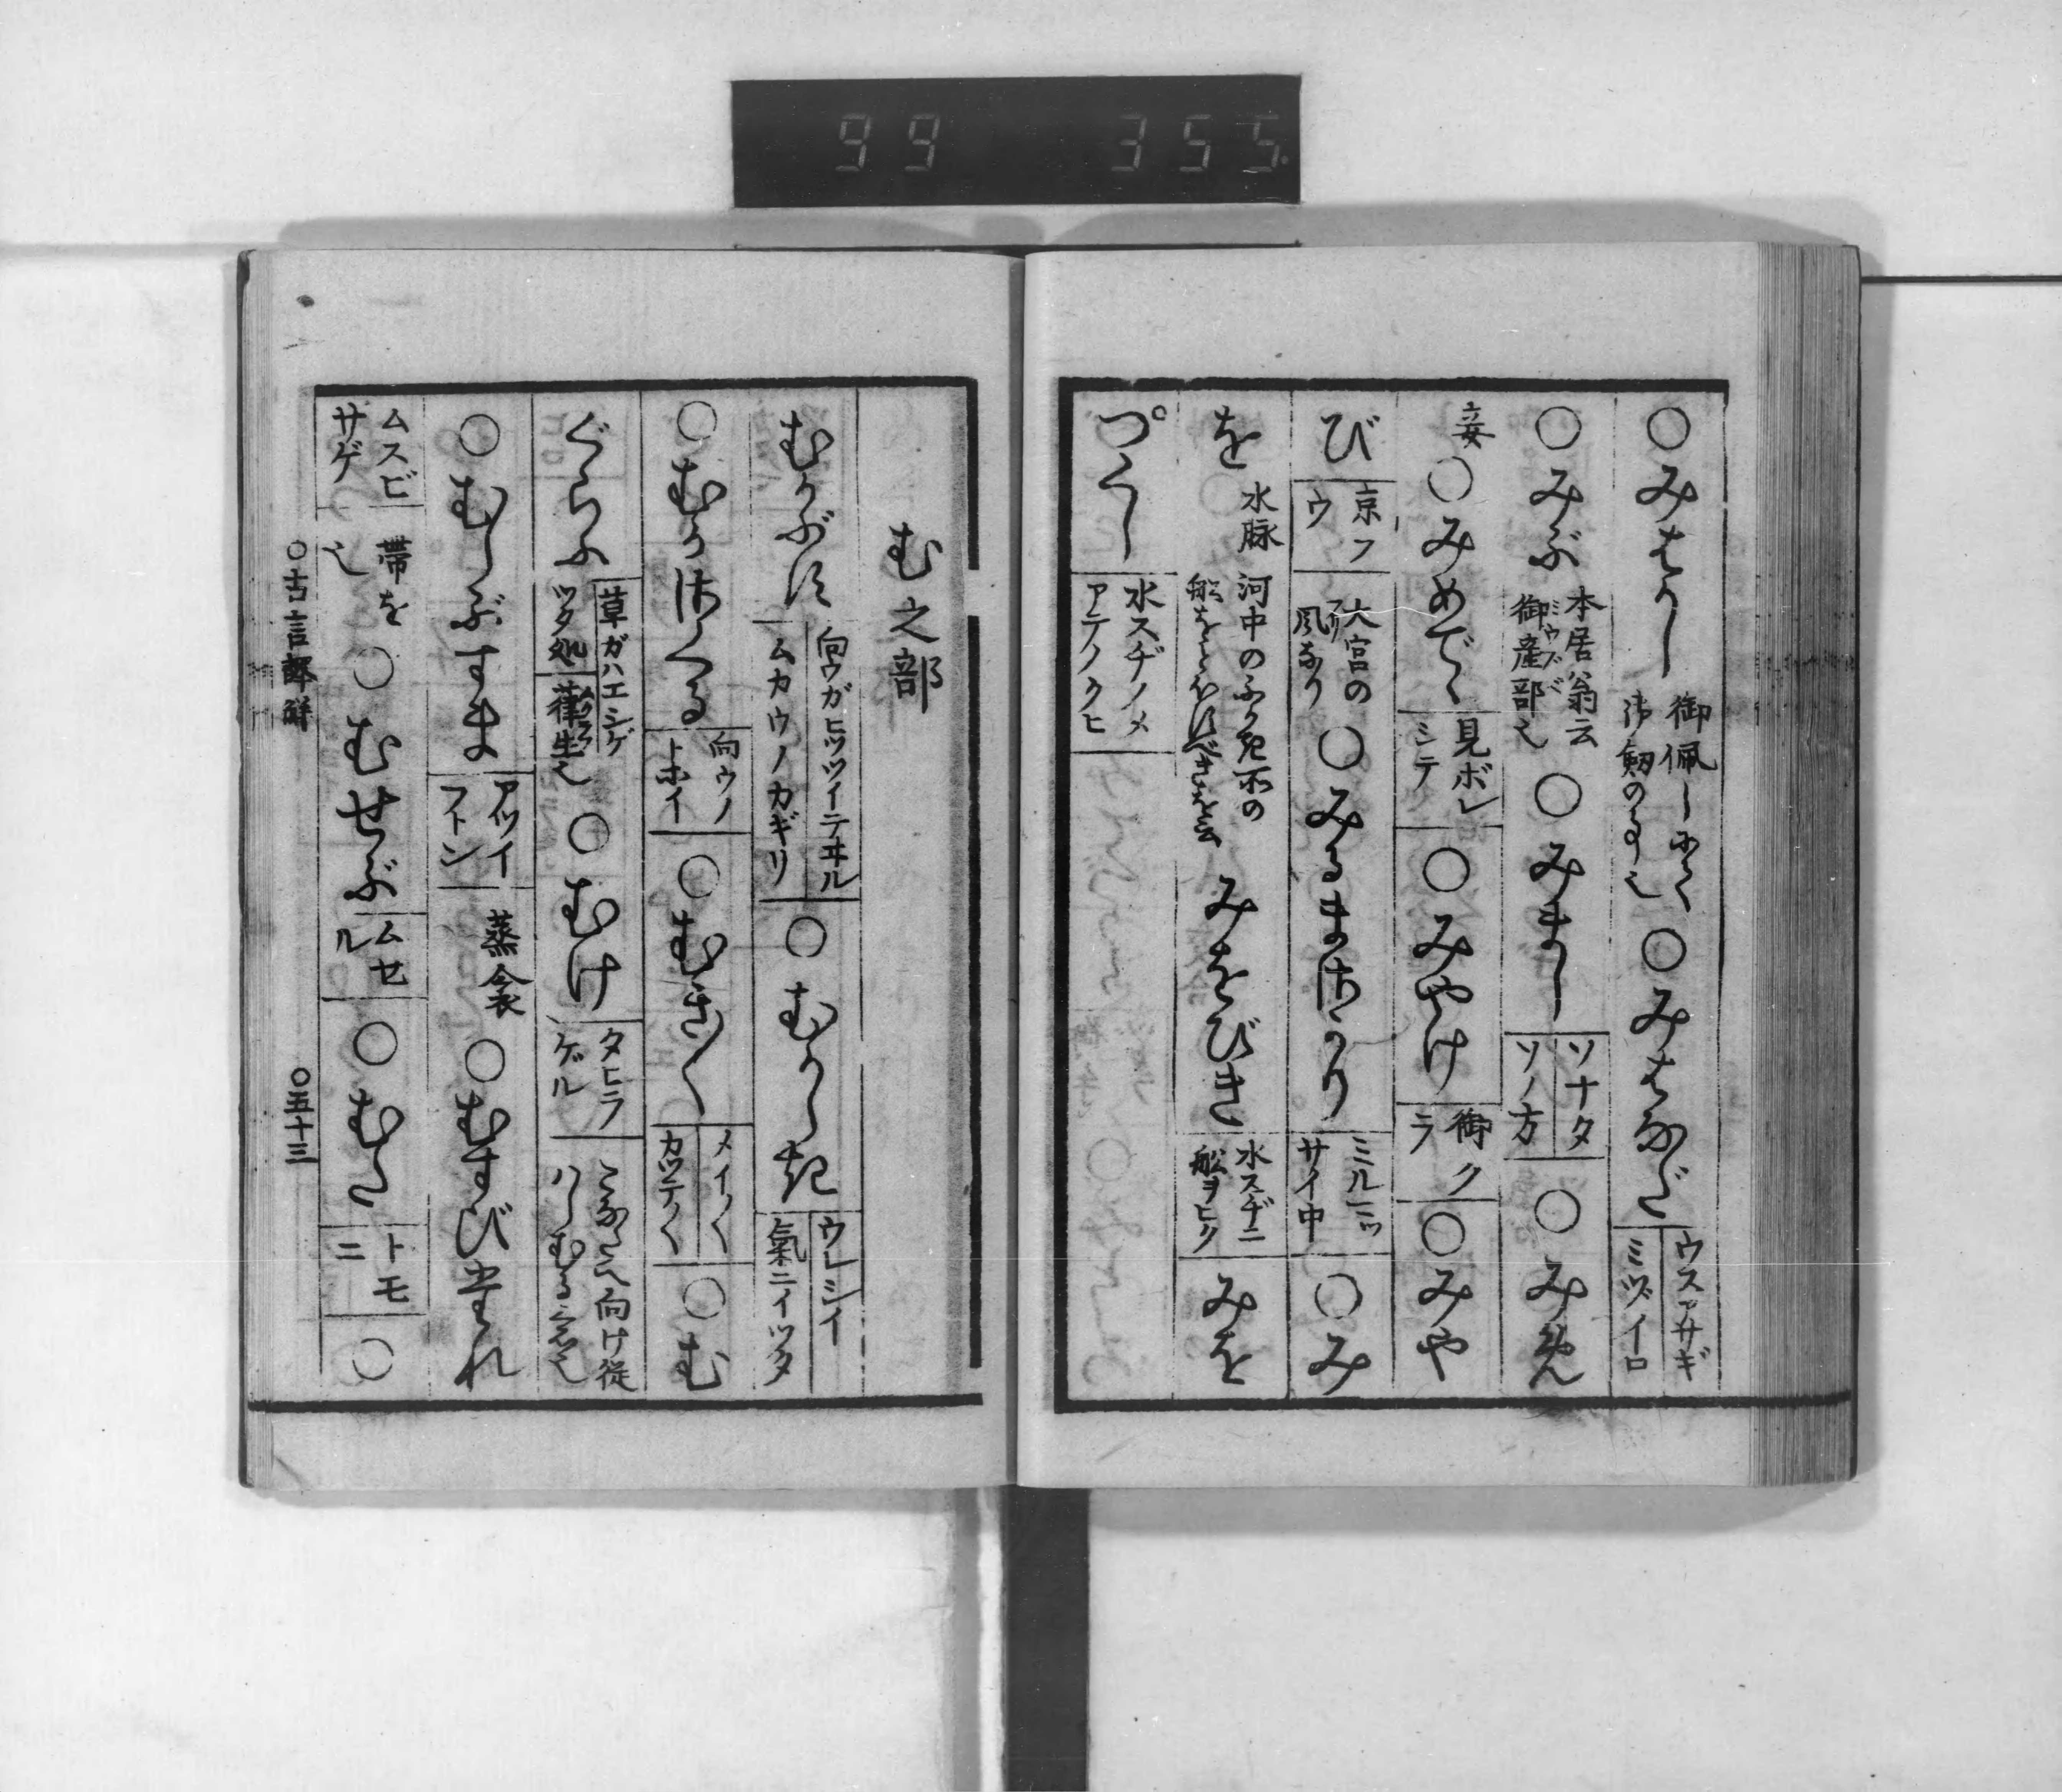 99 355
○みはかし 御佩しにて 御剱の事也 ○みはなだ ウスアサギ ミヅイロ
○みぶ 本居翁云 御産部也 ミウズベ ○みまし ソナタ ソノ方 ○みめ
妾 ○みめでゝ 見ボレ シテ ○みやけ 御クラ ○みや
び 京フウ 大宮の風なり ブリ ○みるまさかり ミルニッ サイ中 ○み
を 水脉 河中のふかき所の 船をとほすべきを云 みをびき 水スヂニ 船ヲヒク みを
つくし 水スヂノメ アテノクヒ
む之部
むかぶす 向ウガヒッツイテヰル ムカウノカギリ ○むかしき ウレシイ 氣ニイッタ
○むかさくる 向ウノ トホイ ○むき〳〵 メイ〳〵 カッテ〳〵 ○む
ぐらふ 草ガハエシゲ ッタ処 葎生也 ムグラフ ○むけ タヒラゲル こなたへ向け従 はしむる意也
○むしぶすま アツイ フトン 蒸衾 ○むすびたれ
ムスビ サゲ 帯を也 ○むせぶ ムセル ○むた トモニ ○
○古言譯解 ○五十三